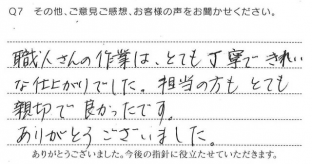 Q7 その他、ご意見ご感想、お客様の声をお聞かせください。
職人さんの作業は、とても丁寧できれい
な仕上がりでした。担当の方もとても
親切で良かったです。
ありがとうございました。
ありがとうございました。今後の指針に役立たせていただきます。